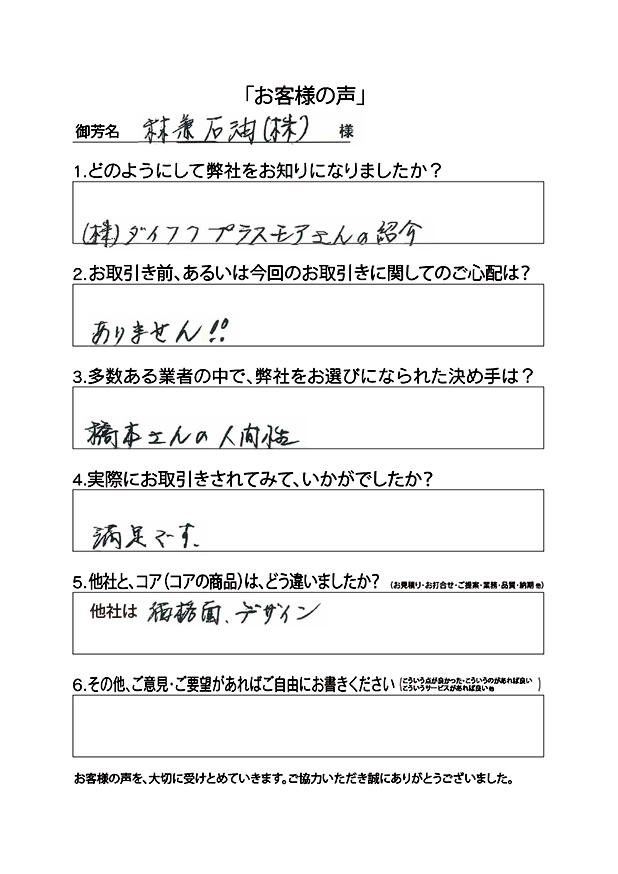 「お客様の声」
御芳名 林兼石油(株) 様
1.どのようにして弊社をお知りになりましたか？
(株)ダイフクプラスモアさんの紹介
2.お取引き前、あるいは今回のお取引きに関してのご心配は？
ありません!!
3.多数ある業者の中で、弊社をお選びになられた決め手は？
橋本さんの人間性
4.実際にお取引きされてみて、いかがでしたか？
満足です.
5.他社と、コア（コアの商品）は、どう違いましたか？ （お見積り・お打合せ・ご提案・業務・品質・納期 他）
他社は 価格面、デザイン
6.その他、ご意見・ご要望があればご自由にお書きください （こういう点が良かった・こういうのがあれば良い
こういうサービスがあれば良い 他 ）
お客様の声を、大切に受けとめていきます。ご協力いただき誠にありがとうございました。